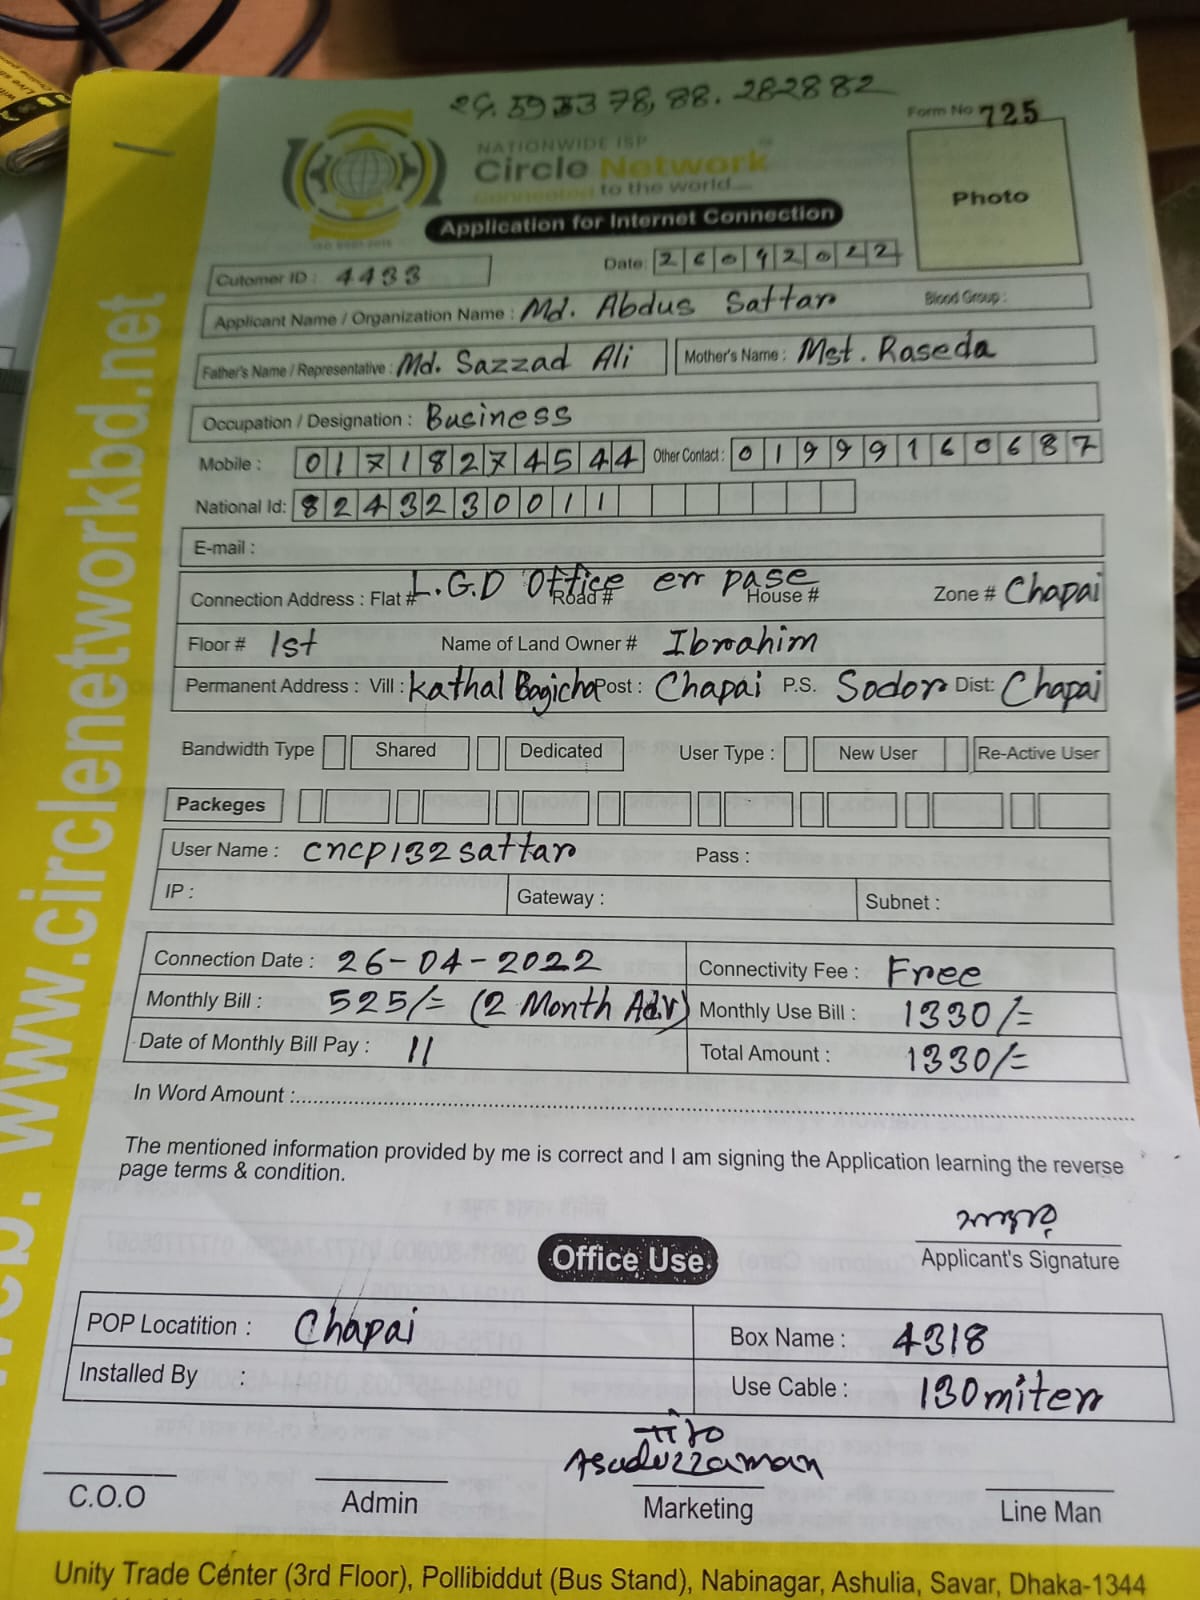 24.5933 78, 88.282882
Form No 725
NATIONWIDE ISP
Circle Network
Connected to the world...
Photo
Application for Internet Connection
ISO 9001:2015
Cutomer ID : 4433
Date: 26042022
Applicant Name / Organization Name : Md. Abdus Sattar Blood Group :
Father's Name / Representative : Md. Sazzad Ali Mother's Name : Mst. Raseda
Occupation / Designation : Business
Mobile : 01718274544 Other Contact : 01999160687
National Id: 8243230011
E-mail :
Connection Address : Flat # L.G.D Office err pase Road # House # Zone # Chapai
Floor # 1st Name of Land Owner # Ibrahim
Permanent Address : Vill : Kathal Bagicha Post : Chapai P.S. Sodor Dist: Chapai
Bandwidth Type Shared Dedicated User Type : New User Re-Active User
Packeges
User Name : cncp132sattar Pass :
IP : Gateway : Subnet :
Connection Date : 26-04-2022 Connectivity Fee : Free
Monthly Bill : 525/= (2 Month Adv) Monthly Use Bill : 1330/=
Date of Monthly Bill Pay : 11 Total Amount : 1330/=
In Word Amount :
The mentioned information provided by me is correct and I am signing the Application learning the reverse
page terms & condition.
Applicant's Signature
Office Use
POP Locatition : Chapai Box Name : 4318
Installed By : Use Cable : 130miterr
Asaduzzaman
C.O.O Admin Marketing Line Man
Unity Trade Center (3rd Floor), Pollibiddut (Bus Stand), Nabinagar, Ashulia, Savar, Dhaka-1344
Web: www.circlenetworkbd.net